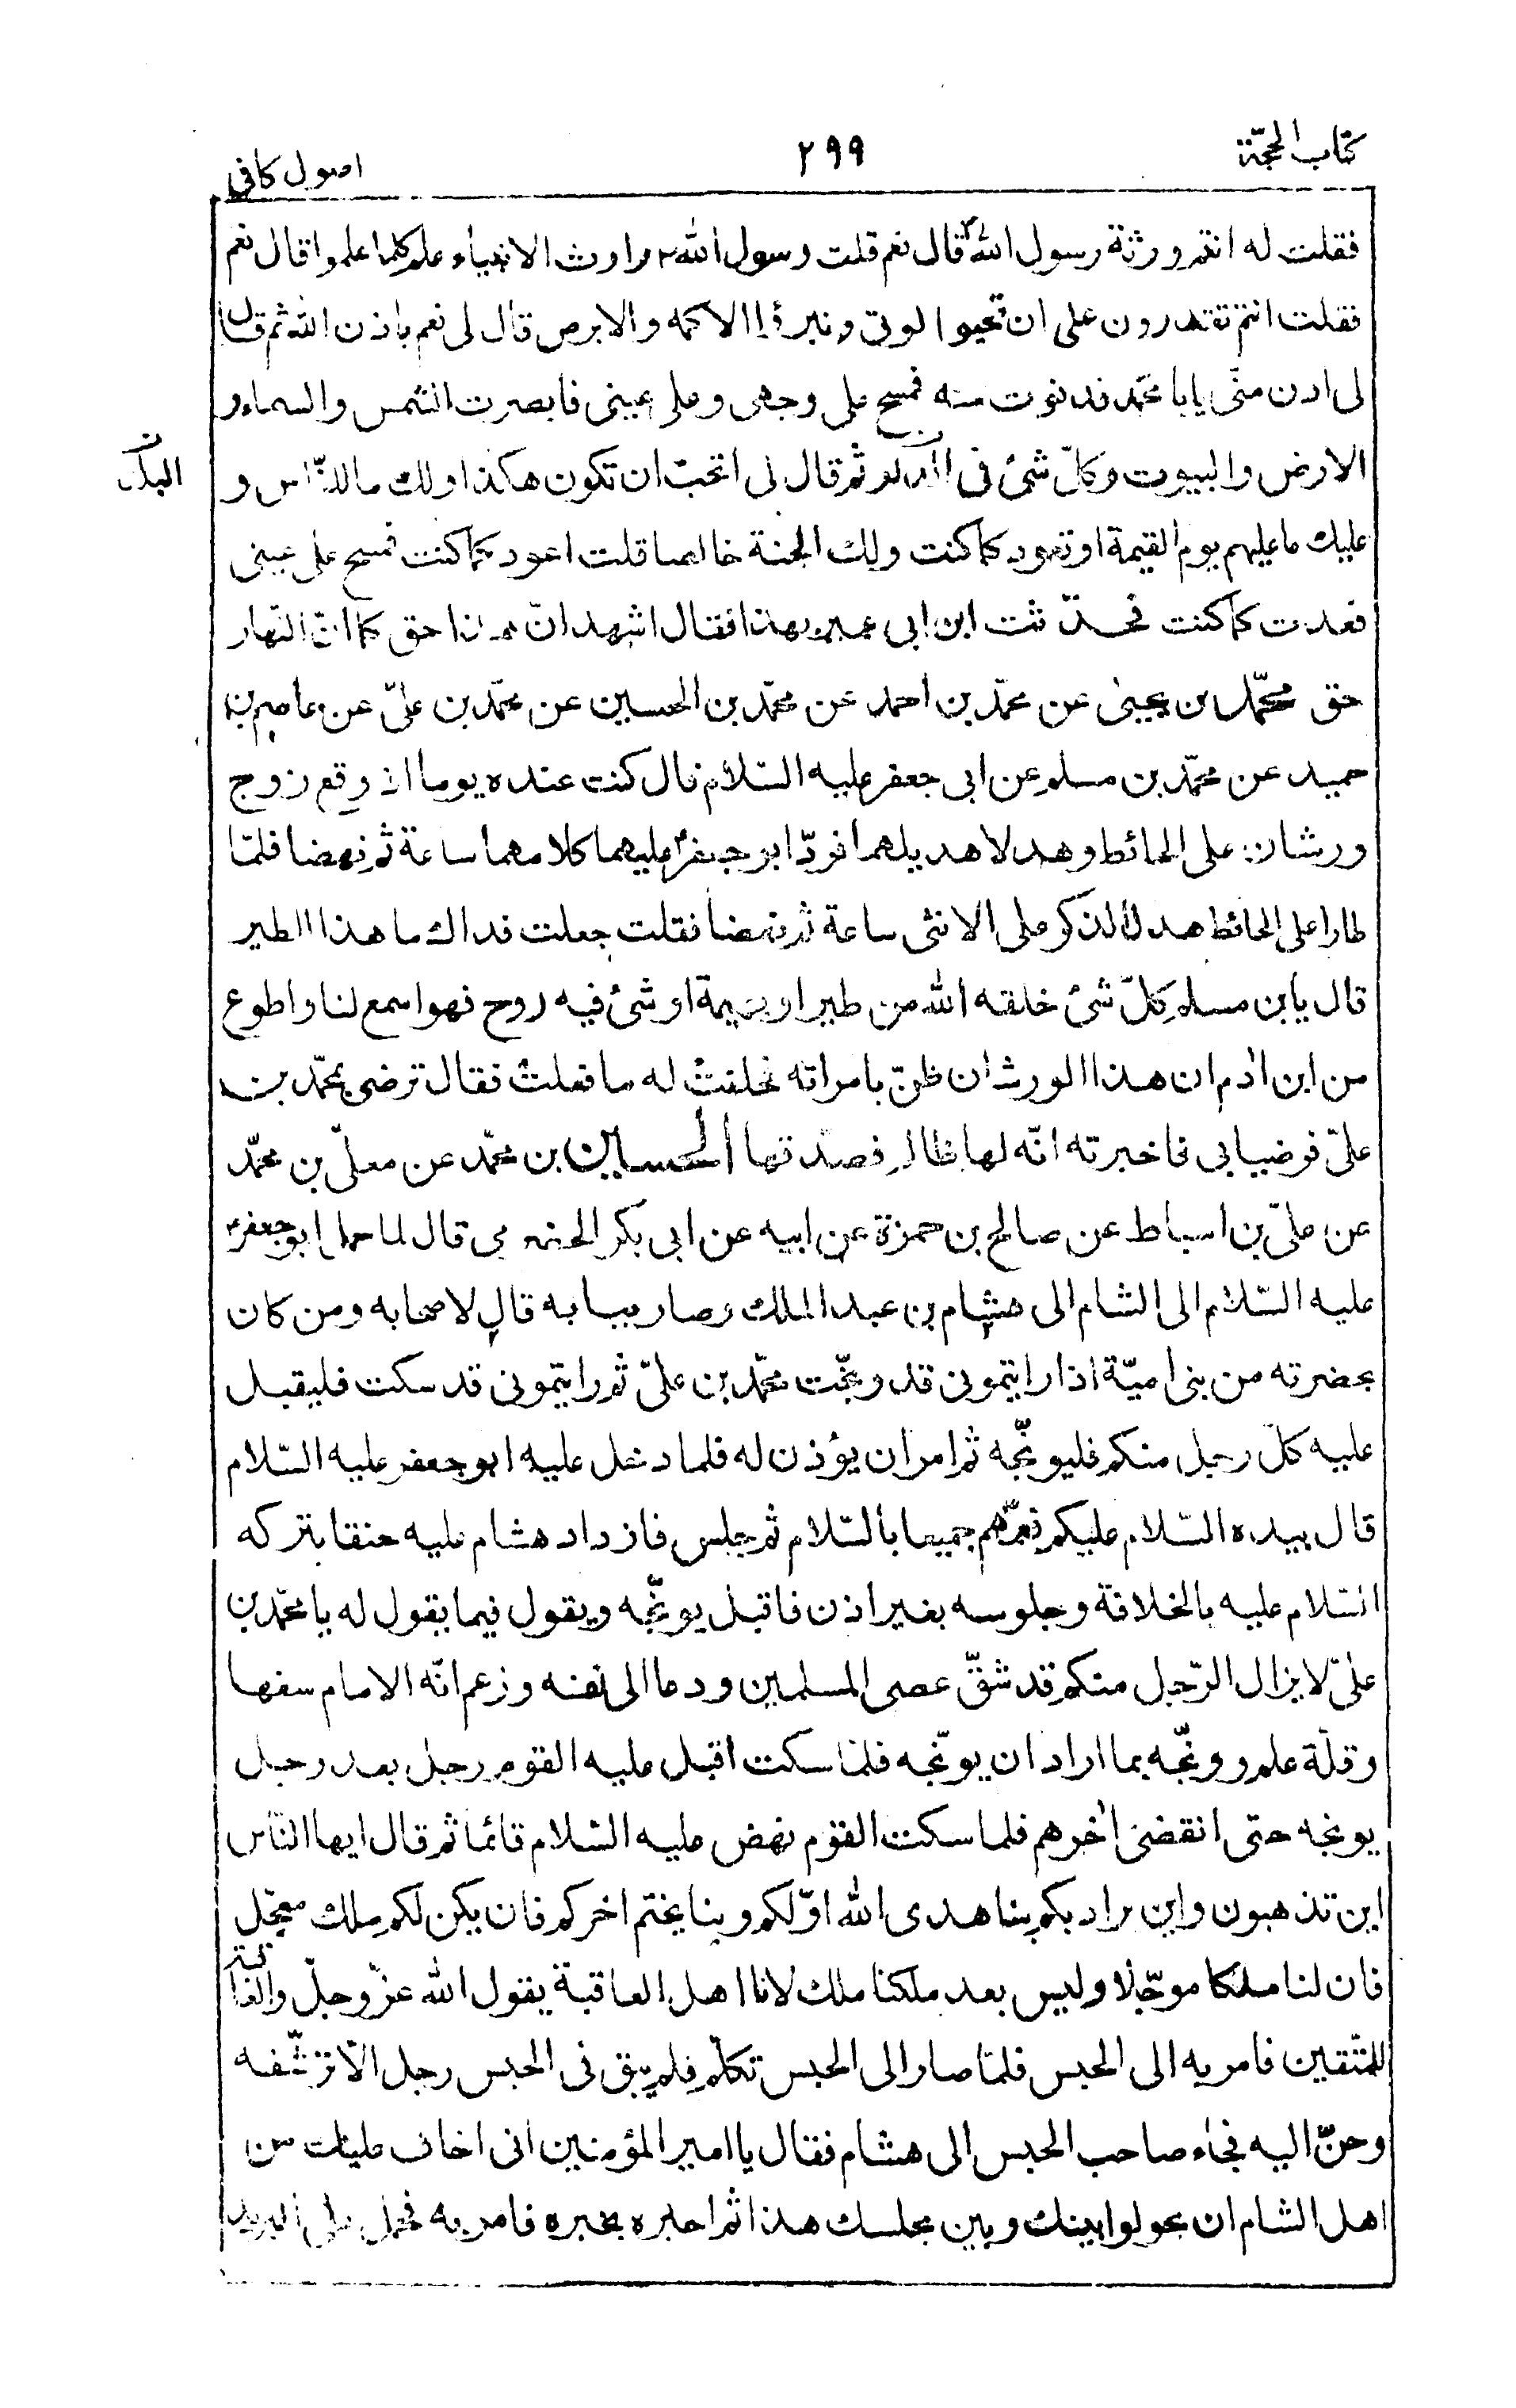 كتاب الحجّة
٢٩٩
اصول كافى
فقلت له انتم ورثة رسول الله قال نعم قلت رسول الله وارث الانبياء علم كلما علموا قال نعم
فقلت انتم تقدرون على ان تحيوا الموتى وتبرؤا الاكمه والابرص قال لى نعم باذن الله ثم قال
لى ادن منّى يابا محمّد فدنوت منه فمسح على وجهى وعلى عينى فابصرت الشمس والسماء و
الارض والبيوت وكلّ شئ فى الدار ثم قال لى اتحبّ ان تكون هكذا ولك ما للنّاس و
البلد
عليك ما عليهم يوم القيمة او تعود كما كنت ولك الجنة خالصا قلت اعود كما كنت فمسح على عينى
فعدت كما كنت فحدّثت ابن ابى عمير بهذا فقال اشهد انّ هذا حق كما انّ النّهار
حق محمّد بن يحيىٰ عن محمّد بن احمد عن محمّد بن الحسين عن محمّد بن علىّ عن عاصم بن
حميد عن محمّد بن مسلم عن ابى جعفر عليه السّلام قال كنت عنده يوما اذ وقع زوج
ورشان على الحائط وهدلا هديلهما فردّ ابو جعفر عليهما كلامهما ساعة ثم نهضا فلمّا
طارا على الحائط هدل الذكر على الانثى ساعة ثم نهضا فقلت جعلت فداك ما هذا الطير
قال يابن مسلم كلّ شئ خلقه الله من طير او بهيمة او شئ فيه روح فهو اسمع لنا واطوع
من ابن ادم ان هذا الورشان ظنّ بامراته فحلفت له ما فعلت فقال ترضى بمحمّد بن
علىّ فرضيا بى فاخبرته انّه لها ظالم فصدّقها الحسين بن محمّد عن معلّى بن محمّد
عن علىّ بن اسباط عن صالح بن حمزة عن ابيه عن ابى بكر الحضرمى قال لما حمل ابو جعفر
عليه السّلام الى الشام الى هشام بن عبد الملك وصار ببابه قال لاصحابه ومن كان
بحضرته من بنى اميّة اذا رايتمونى قد وبّخت محمّد بن علىّ ثم رايتمونى قد سكت فليقبل
عليه كلّ رجل منكم فليوبّخه ثم امر ان يؤذن له فلما دخل عليه ابو جعفر عليه السّلام
قال بيده السّلام عليكم فعمّهم جميعا بالسّلام ثم جلس فازداد هشام عليه حنقا بتركه
السّلام عليه بالخلافة وجلوسه بغير اذن فاقبل يوبّخه ويقول فيما يقول له يا محمّد بن
علىّ لا يزال الرّجل منكم قد شقّ عصى المسلمين ودعا الى نفسه وزعم انّه الامام سفها
وقلّة علم ووبّخه بما اراد ان يوبّخه فلمّا سكت اقبل عليه القوم رجل بعد رجل
يوبخه حتى انقضىٰ اخرهم فلما سكت القوم نهض عليه السّلام قائما ثم قال ايها النّاس
اين تذهبون واين يراد بكم بنا هدى الله اوّلكم وبنا يختم اخركم فان يكن لكم ملك معجّل
فان لنا ملكا موجّلا وليس بعد ملكنا ملك لانا اهل العاقبة يقول الله عزّ وجلّ والعاقبة
للمتّقين فامر به الى الحبس فلمّا صار الى الحبس تكلّم فلم يبق فى الحبس رجل الّا ترشّفه
وحنّ اليه فجاء صاحب الحبس الى هشام فقال يا امير المؤمنين انى اخاف عليك من
اهل الشام ان يحولوا بينك وبين مجلسك هذا ثم اخبره بخبره فامر به فحمل على البريد